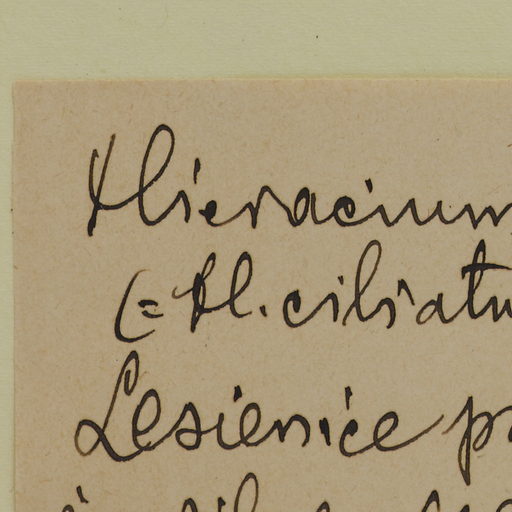 Hieracium
(= H. ciliatu
Lesienice p